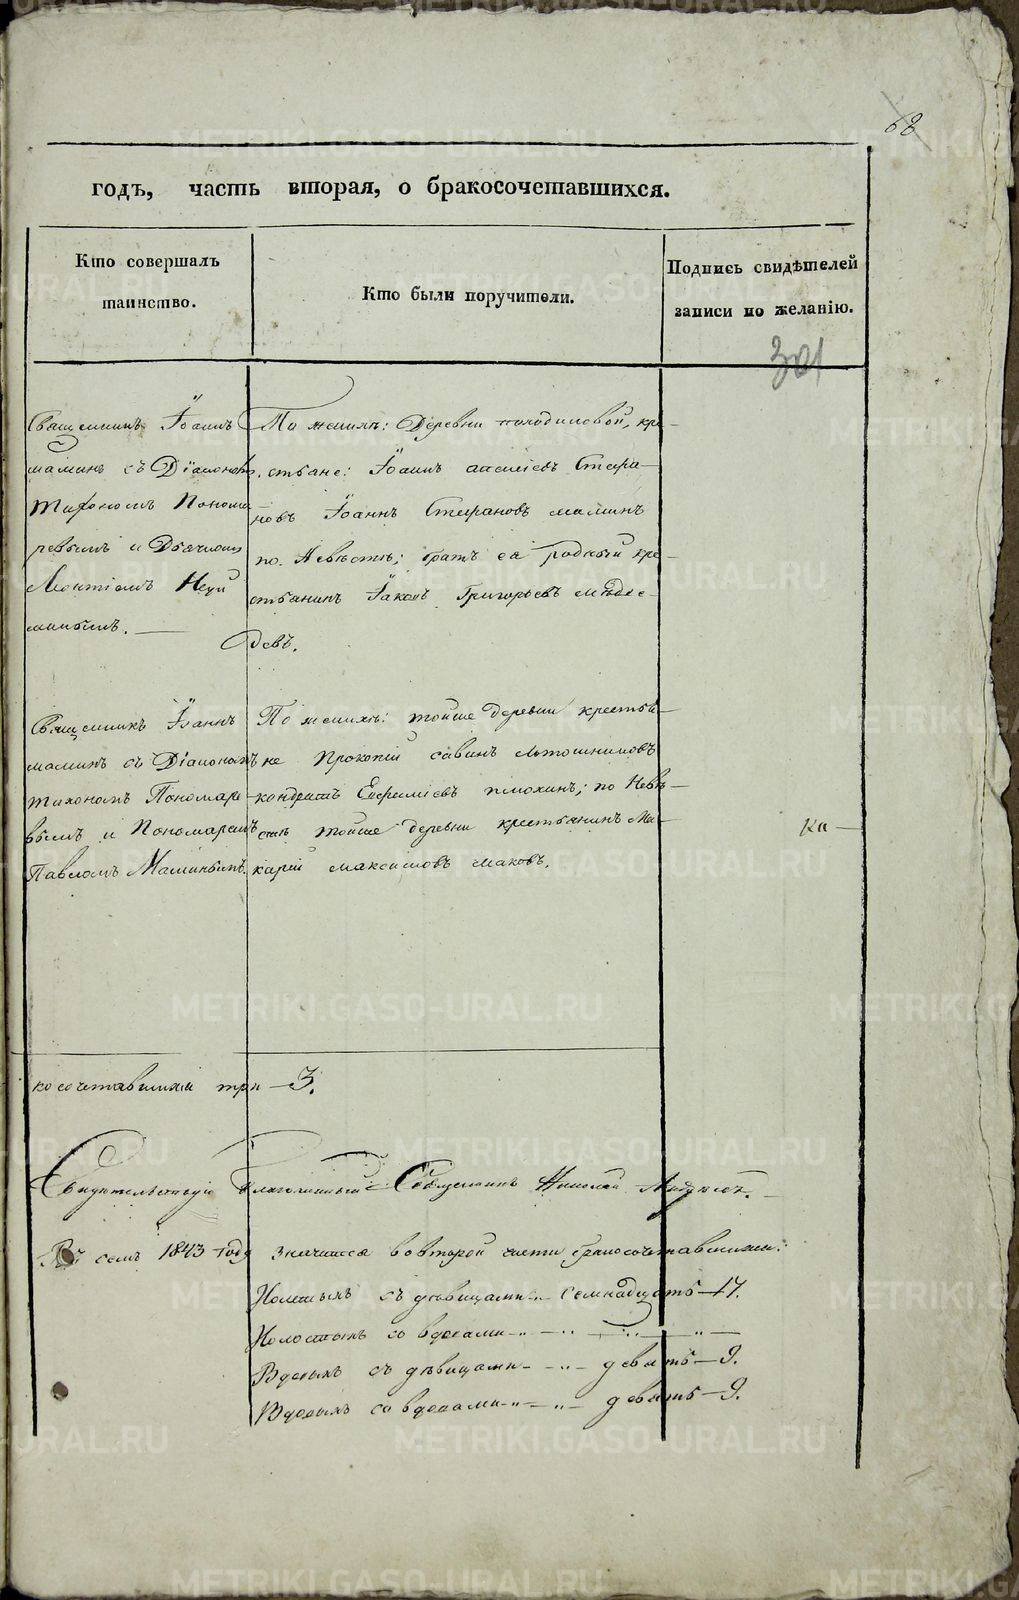 68
годъ, часть вторая, о бракосочетавшихся.
Кто совершалъ
таинство.
Кто были поручители.
Подпись свидѣтелей
записи по желанію.
301
Священникъ Іоаннъ
маминъ съ Діакономъ
Тихономъ Понома
ревымъ и Дьячкомъ
По женихѣ: Деревни кре-
стьяне: Іоаннъ Стефа-
новъ Іоаннъ Стефановъ маминъ
по невѣстѣ; братъ ея родный кре-
стьянинъ Іаковъ Григорьевъ
девъ.
Священникъ Іоаннъ
маминъ съ Діакономъ
тихономъ Пономаре-
вымъ и Пономаремъ
Павломъ Маминымъ.
По женихѣ: тойже деревни крестья-
не Прокопій савинъ
кондратъ плюхинъ; по Невѣ-
стѣ тойже деревни крестьянинъ Ма-
карій максимовъ
ка-
косочетавшихся три-3.
Свидѣтельствующій Благочинный Священникъ Николай
семъ 1843 году значится во второй части бракосочетавшихся:
Холостыхъ съ дѣвицами семнадцать-17.
Холостыхъ со вдовами
Вдовыхъ съ дѣвицами девять-9.
Вдовыхъ со вдовами девять-9.
METRIKI.GASO-URAL.RU